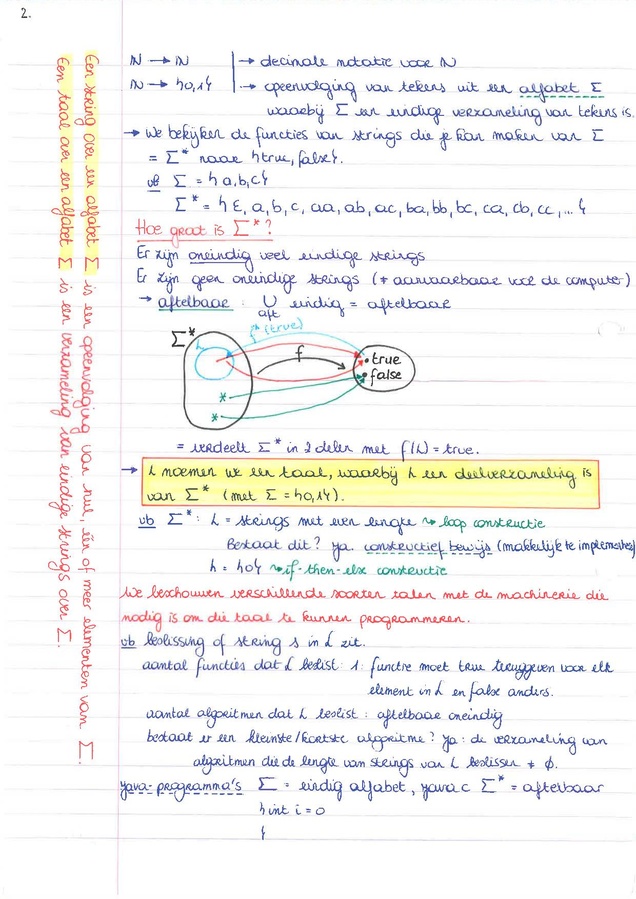 2.
Een string over een alfabet Σ is een opeenvolging van nul, één of meer elementen van Σ.
Een taal over een alfabet Σ is een verzameling van eindige strings over Σ.
ℕ → ℕ | → decimale notatie voor ℕ
ℕ → {0,1} | → opeenvolging van tekens uit een alfabet Σ
waarbij Σ een eindige verzameling van tekens is.
→ We bekijken de functies van strings die je kan maken van Σ
= Σ* naar {true, false}.
vb Σ = {a,b,c}
Σ* = {ε, a, b, c, aa, ab, ac, ba, bb, bc, ca, cb, cc, ... }
Hoe groot is Σ*?
Er zijn oneindig veel eindige strings
Er zijn geen oneindige strings (≠ aanvaarbaar voor de computer)
→ aftelbaar : ∪ eindig = aftelbaar
aft
Σ*
L
f⁻¹(true)
f
true
false
= verdeelt Σ* in 2 delen met f(L) = true.
→ L noemen we een taal, waarbij L een deelverzameling is
van Σ* (met Σ = {0,1}).
vb Σ* : L = strings met even lengte ↝ loop constructie
Bestaat dit? Ja. constructief bewijs (makkelijk te implementere
L = {0} ↝ if-then-else constructie
We beschouwen verschillende soorten talen met de machinerie die
nodig is om die taal te kunnen programmeren.
vb beslissing of string s in L zit.
aantal functies dat L beslist : 1 : functie moet true teruggeven voor elk
element in L en false anders.
aantal algoritmen dat L beslist : aftelbaar oneindig
bestaat er een kleinste/kortste algoritme? Ja : de verzameling van
algoritmen die de lengte van strings van L beslissen ≠ ∅.
Java-programma's Σ = eindig alfabet, java ⊂ Σ* = aftelbaar
{int i = 0
}